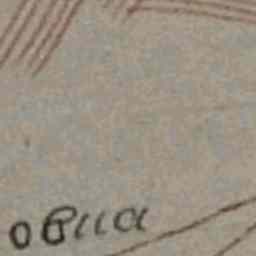 овиа